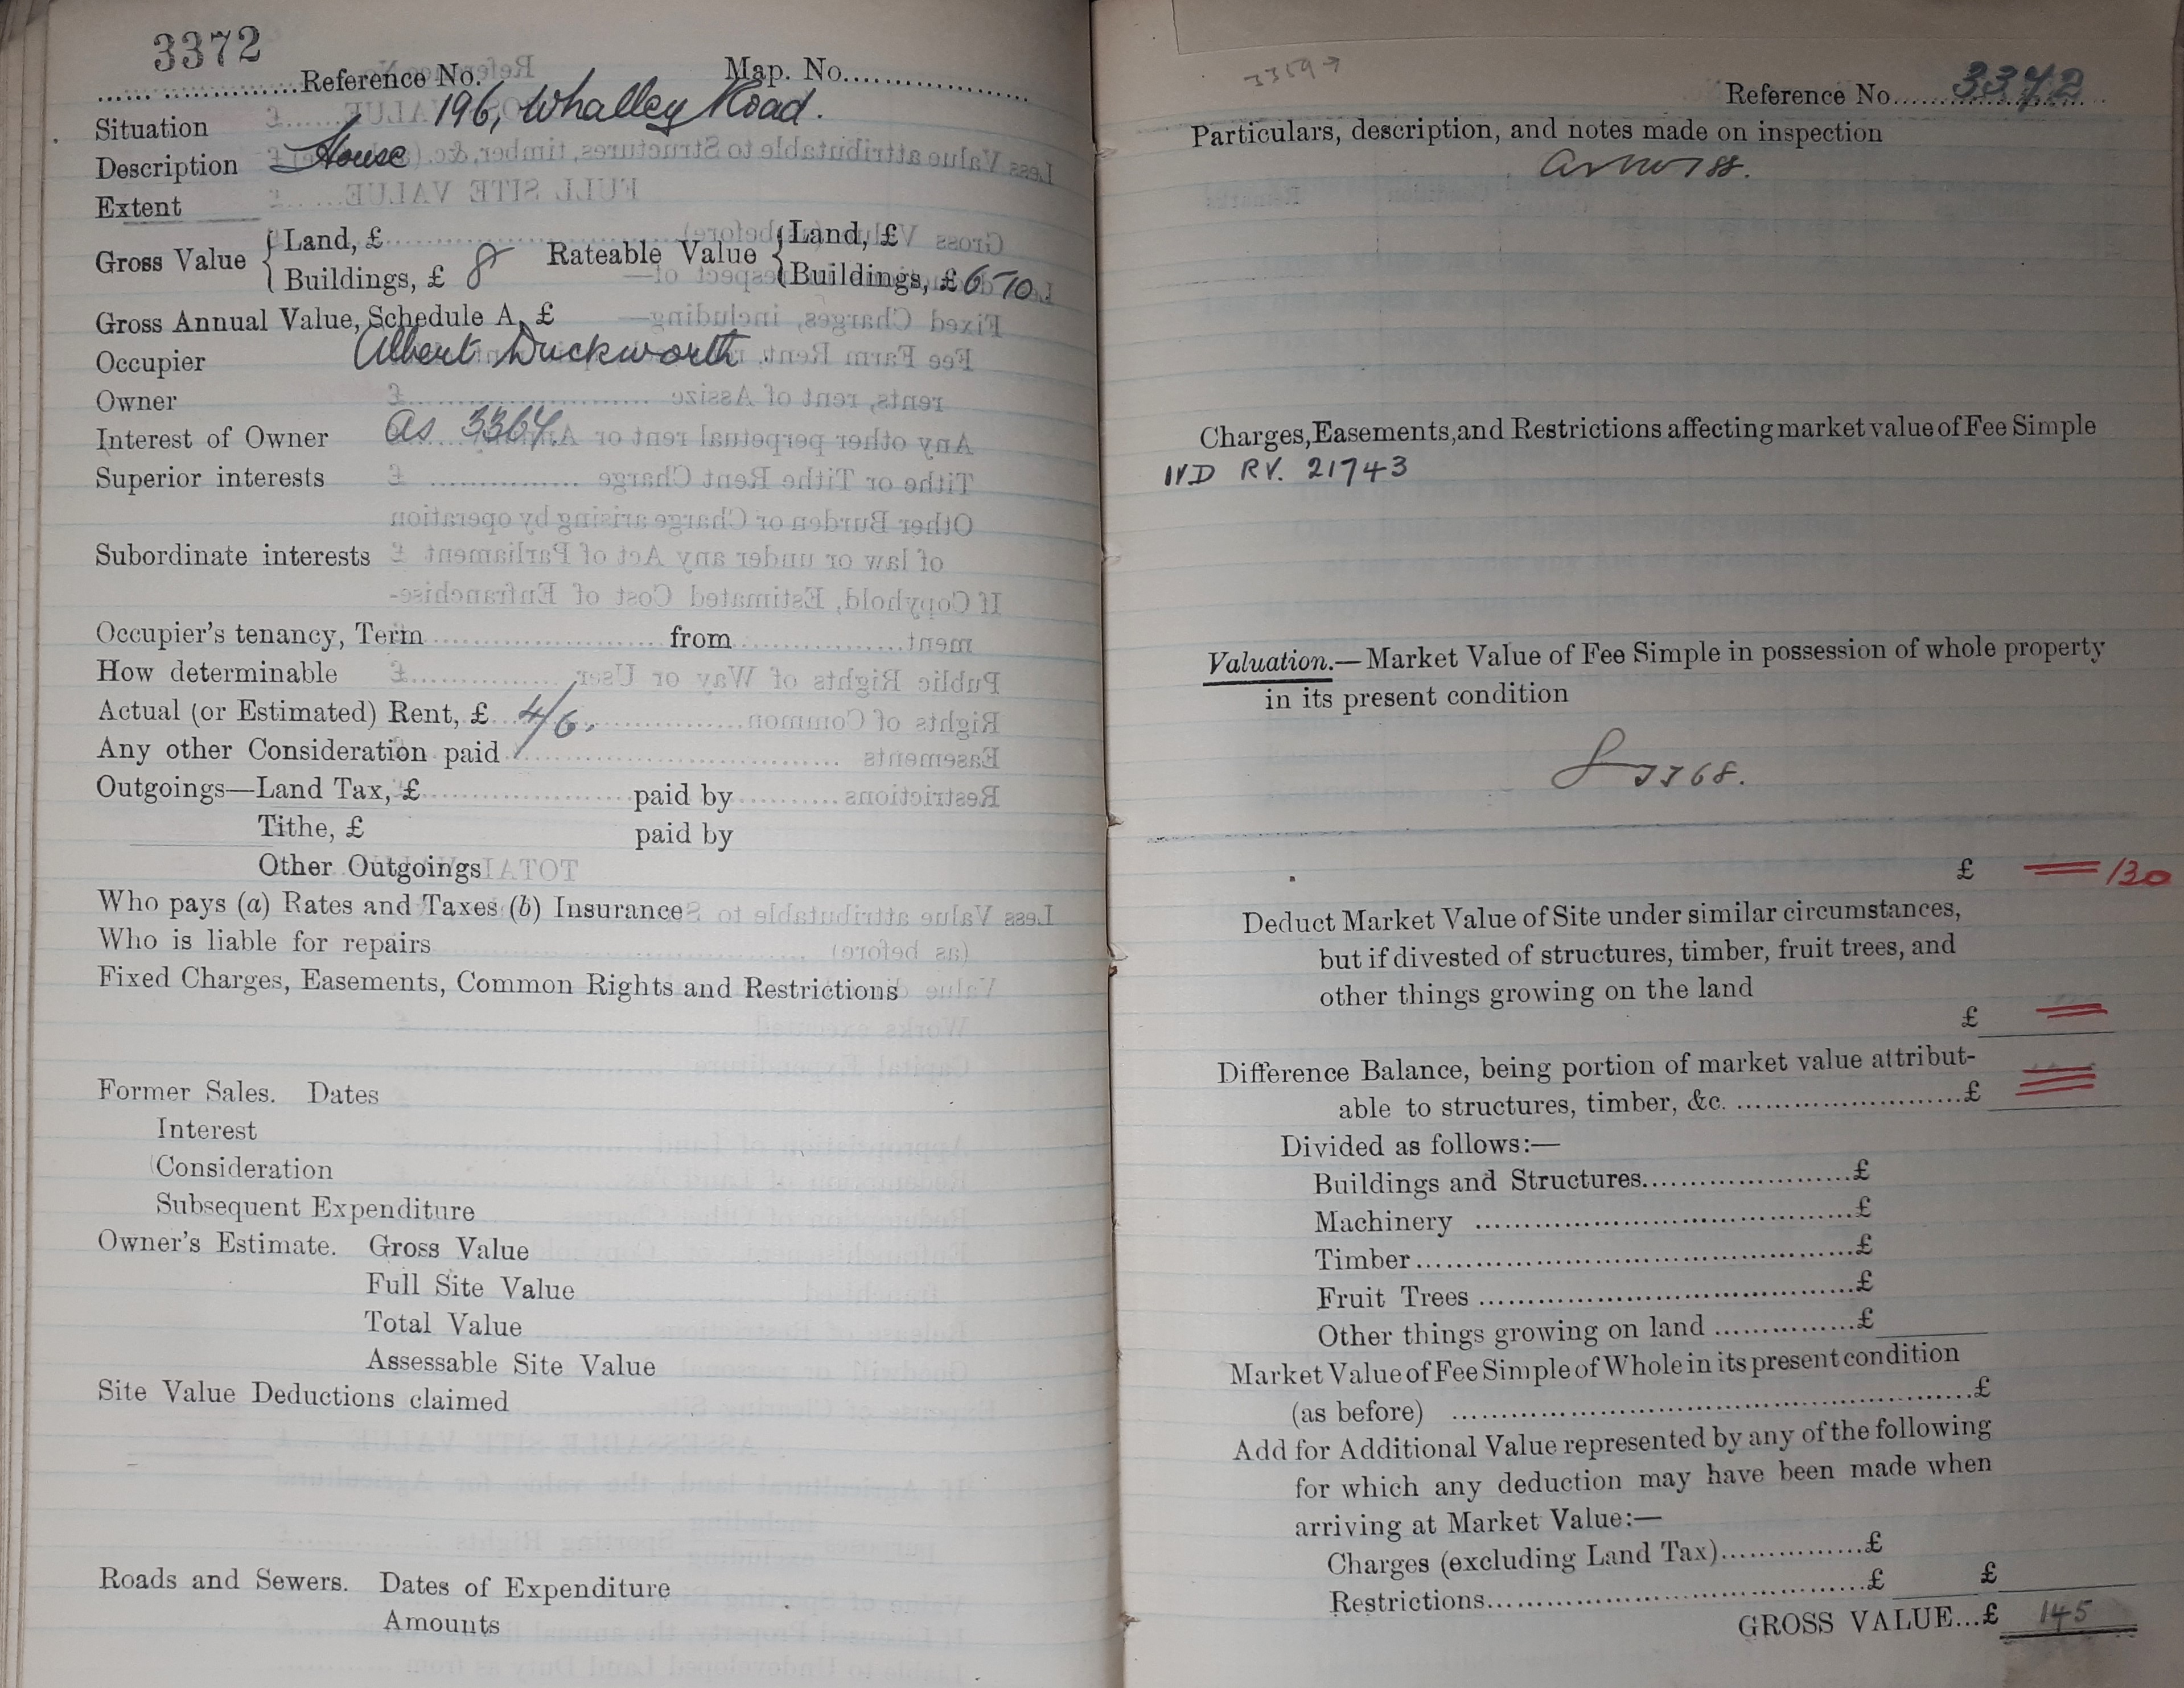 3372
Reference No. Map. No.
Situation 196, Whalley Road.
Description House
Extent
Gross Value { Land, £ Rateable Value { Land, £
Buildings, £ 8 Buildings, £ 6-10.
Gross Annual Value, Schedule A, £
Occupier Albert Duckworth
Owner
Interest of Owner as 3364.
Superior interests
Subordinate interests
Occupier's tenancy, Term from
How determinable
Actual (or Estimated) Rent, £ 4/6.
Any other Consideration paid
Outgoings—Land Tax, £ paid by
Tithe, £ paid by
Other Outgoings
Who pays (a) Rates and Taxes (b) Insurance
Who is liable for repairs
Fixed Charges, Easements, Common Rights and Restrictions
Former Sales. Dates
Interest
Consideration
Subsequent Expenditure
Owner's Estimate. Gross Value
Full Site Value
Total Value
Assessable Site Value
Site Value Deductions claimed
Roads and Sewers. Dates of Expenditure
Amounts
3359→
Reference No. 3372
Particulars, description, and notes made on inspection
Charges, Easements, and Restrictions affecting market value of Fee Simple
IVD RV. 21743
Valuation.—Market Value of Fee Simple in possession of whole property
in its present condition
£ 130
Deduct Market Value of Site under similar circumstances,
but if divested of structures, timber, fruit trees, and
other things growing on the land
£
Difference Balance, being portion of market value attribut-
able to structures, timber, &c. £
Divided as follows:—
Buildings and Structures £
Machinery £
Timber £
Fruit Trees £
Other things growing on land £
Market Value of Fee Simple of Whole in its present condition
(as before) £
Add for Additional Value represented by any of the following
for which any deduction may have been made when
arriving at Market Value:—
Charges (excluding Land Tax) £
Restrictions £ £
GROSS VALUE...£ 145